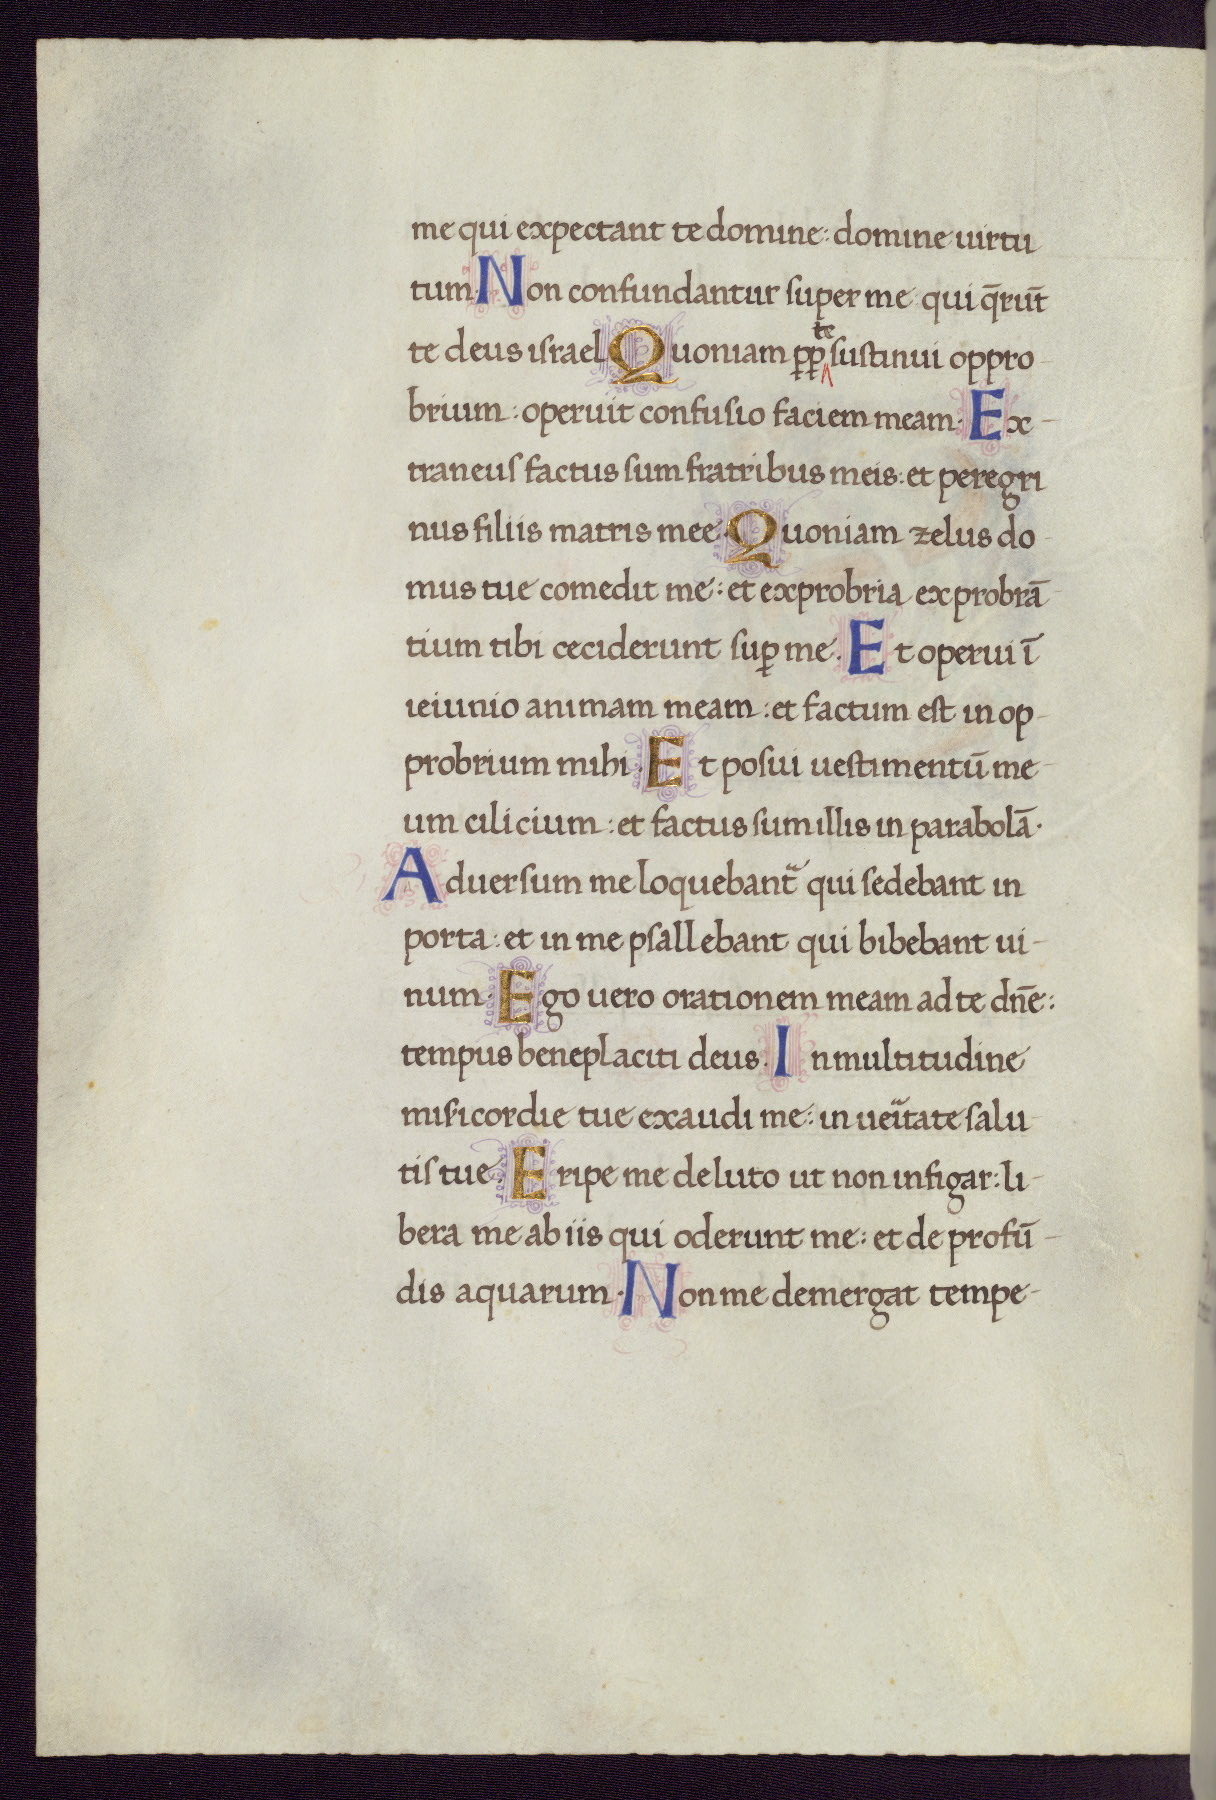 me qui expectant te domine: domine uirtu
tum. Non confundantur super me qui q̄rūt
te deus israel. Quoniam ꝓꝑ te sustinui oppro-
brium: operuit confusio faciem meam. Ex-
traneus factus sum fratribus meis: et peregri
nus filiis matris mee. Quoniam zelus do-
mus tue comedit me: et exprobria exprobrā-
tium tibi ceciderunt suꝑ me. Et operui ī
ieiunio animam meam: et factum est in op-
probrium mihi. Et posui uestimentū me-
um cilicium: et factus sum illis in parabolā.
Aduersum me loquebant᷑ qui sedebant in
porta: et in me psallebant qui bibebant ui-
num. Ego uero orationem meam ad te dn̄e:
tempus beneplaciti deus. In multitudine
misicordie tue exaudi me: in ueitate salu-
tis tue. Eripe me de luto ut non infigar: li-
bera me ab iis qui oderunt me: et de profū-
dis aquarum. Non me demergat tempe-